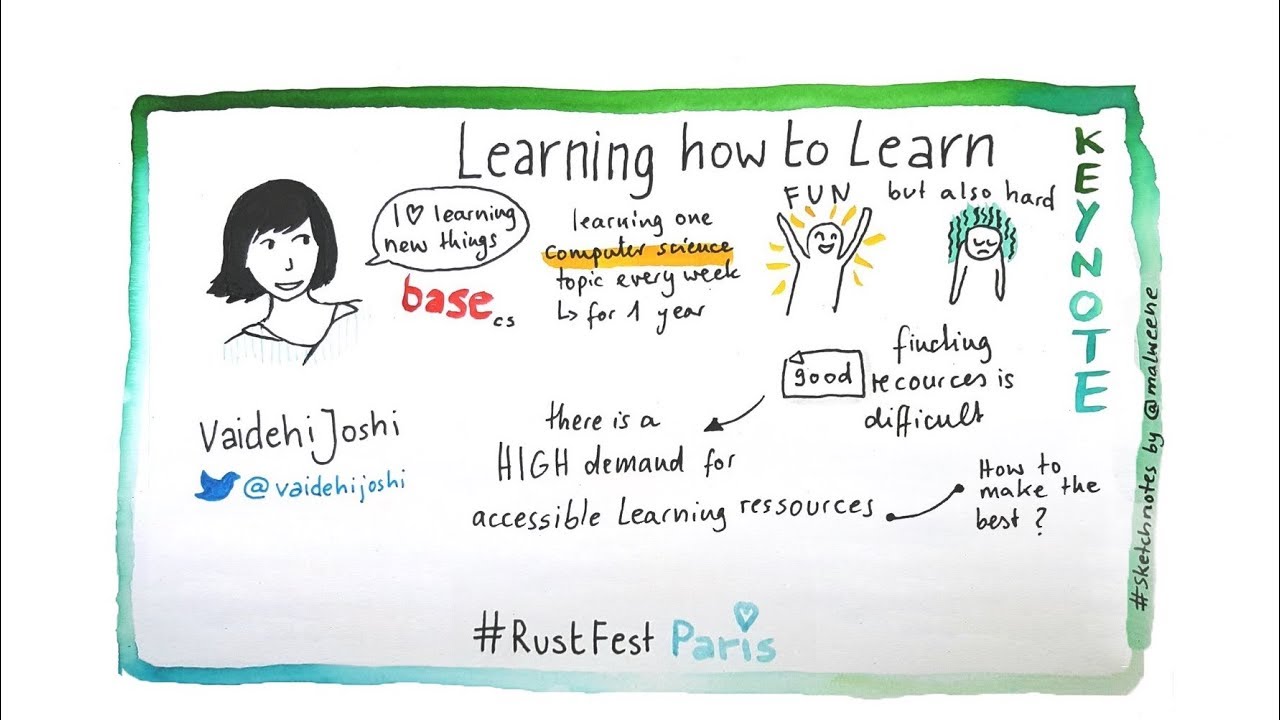 Learning how to Learn
KEYNOTE
I ♡ learning
new things
base cs
learning one
computer science
topic every week
↳ for 1 year
FUN
but also hard
good
finding
recources is
difficult
there is a
HIGH demand for
accessible Learning ressources
How to
make the
best ?
Vaidehi Joshi
@vaidehijoshi
#RustFest Paris
#sketchnotes by @malweene